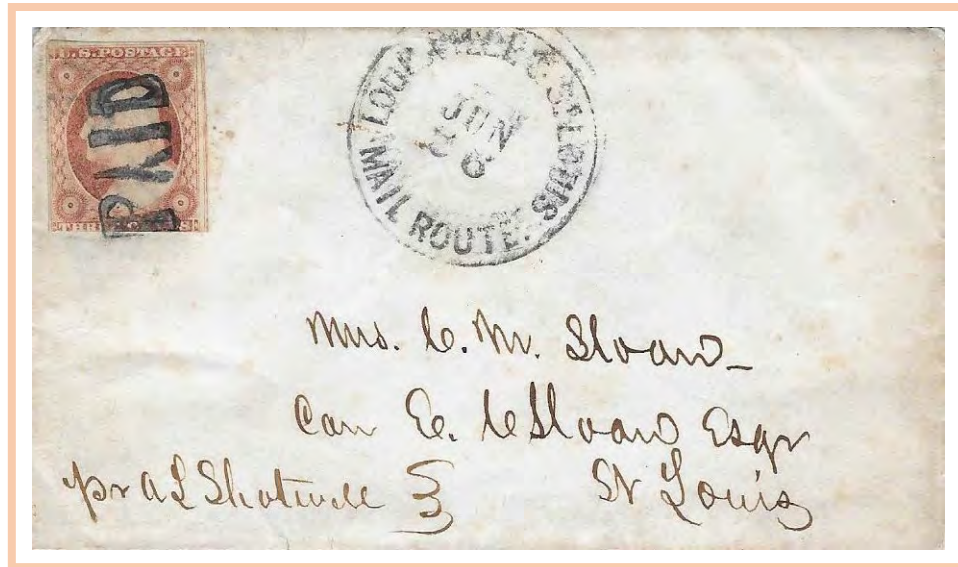 U.S. POSTAGE
PAID
THREE CENTS
LOUISVILLE & ST. LOUIS
MAIL ROUTE.
JUN
6
Mrs. C. M. Sloan
Care E. C. Sloan Esqr
St Louis
pr A L Shotwell